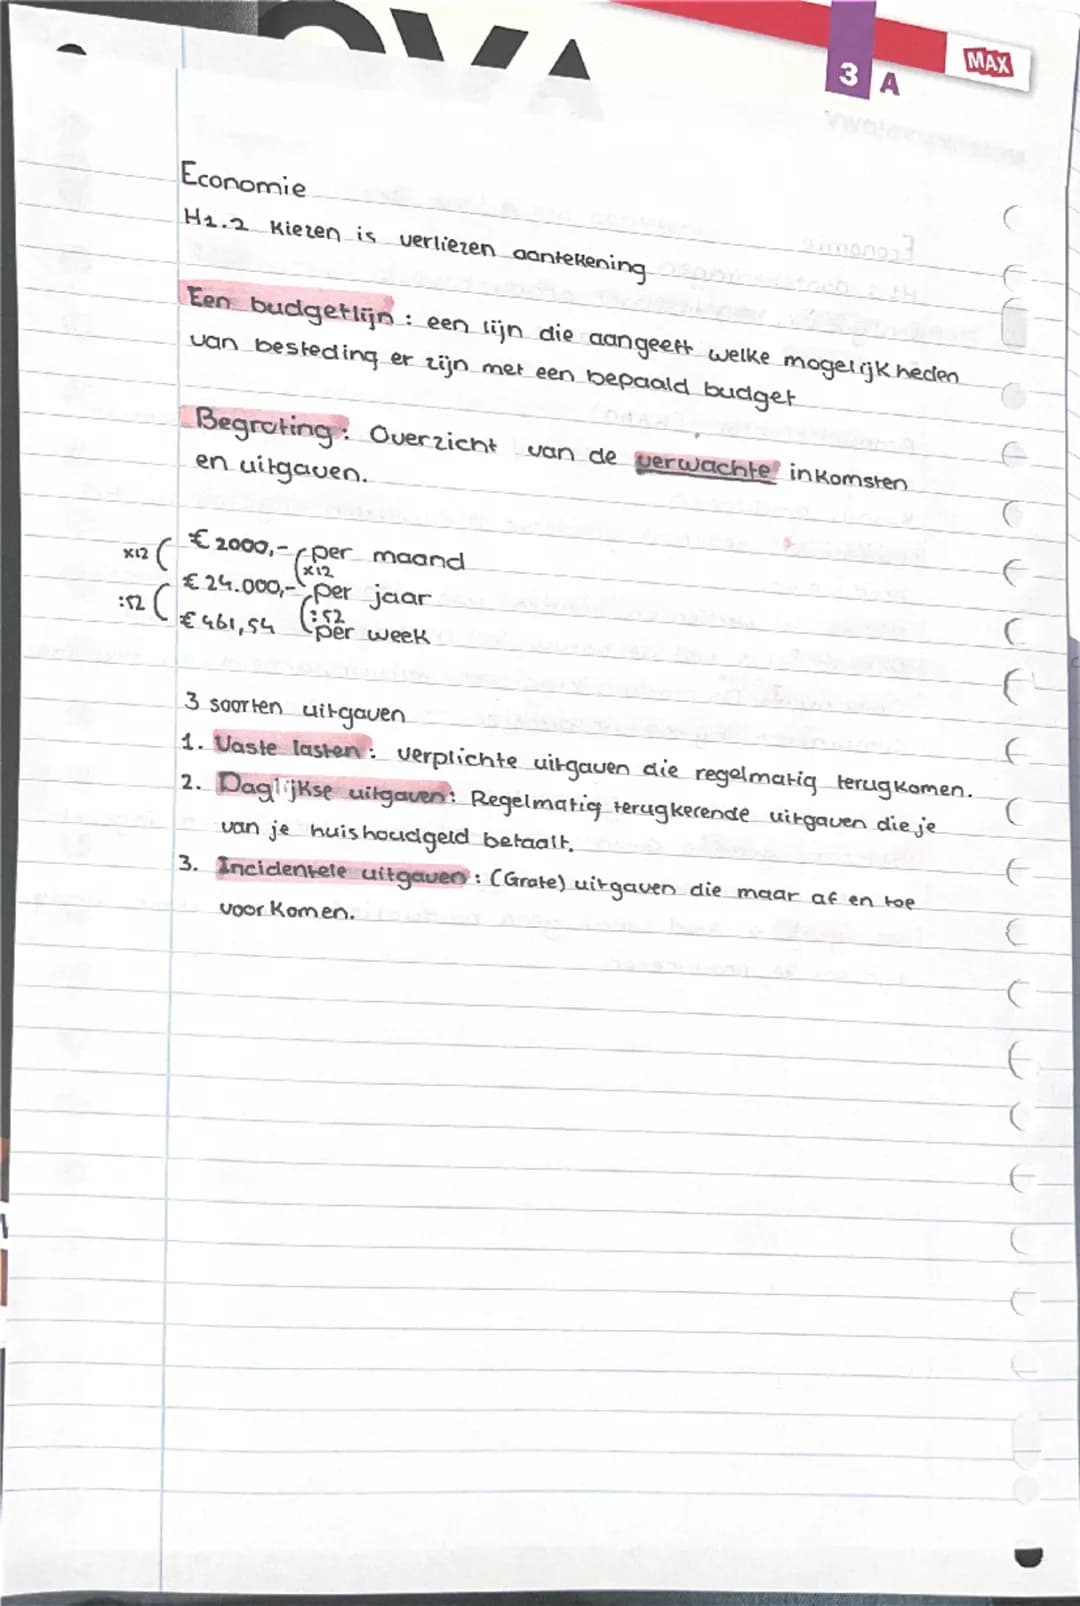 OVA
3 A
MAX
Economie
H1.2 Kiezen is verliezen aantekening
Een budgetlijn : een lijn die aangeeft welke mogelijkheden
van besteding er zijn met een bepaald budget
Begroting : Overzicht van de verwachte inkomsten
en uitgaven.
x12 € 2000,- per maand
x12
:52 € 24.000,- per jaar
:52
€ 461,54 per week
3 soorten uitgaven
1. Vaste lasten : verplichte uitgaven die regelmatig terugkomen.
2. Daglijkse uitgaven : Regelmatig terugkerende uitgaven die je
van je huishoudgeld betaalt.
3. Incidentele uitgaven : (Grote) uitgaven die maar af en toe
voorkomen.